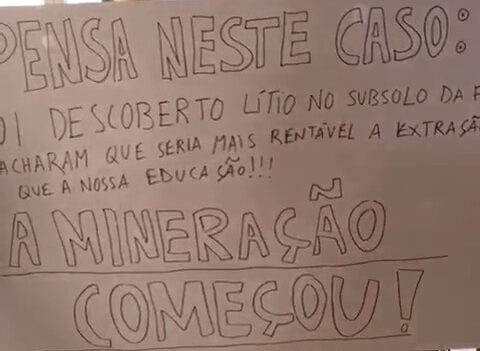 PENSA NESTE CASO:
OI DESCOBERTO LÍTIO NO SUBSOLO DA F
ACHARAM QUE SERIA MAIS RENTÁVEL A EXTRAÇÃO
QUE A NOSSA EDUCAÇÃO!!!
A MINERAÇÃO
COMEÇOU!